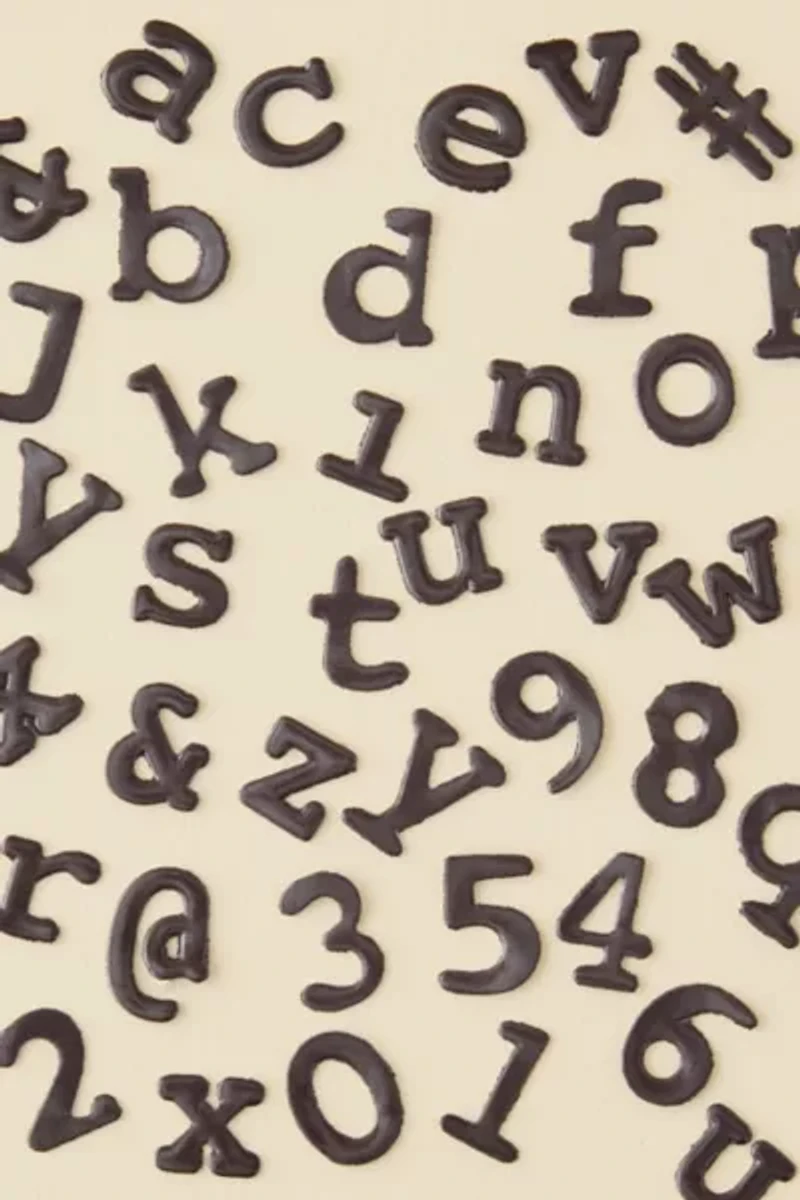 a c e v #
& b d f
k 1 n o
y s t u v w
& z y 9 8
r @ 3 5 4
2 x 0 1 6
u